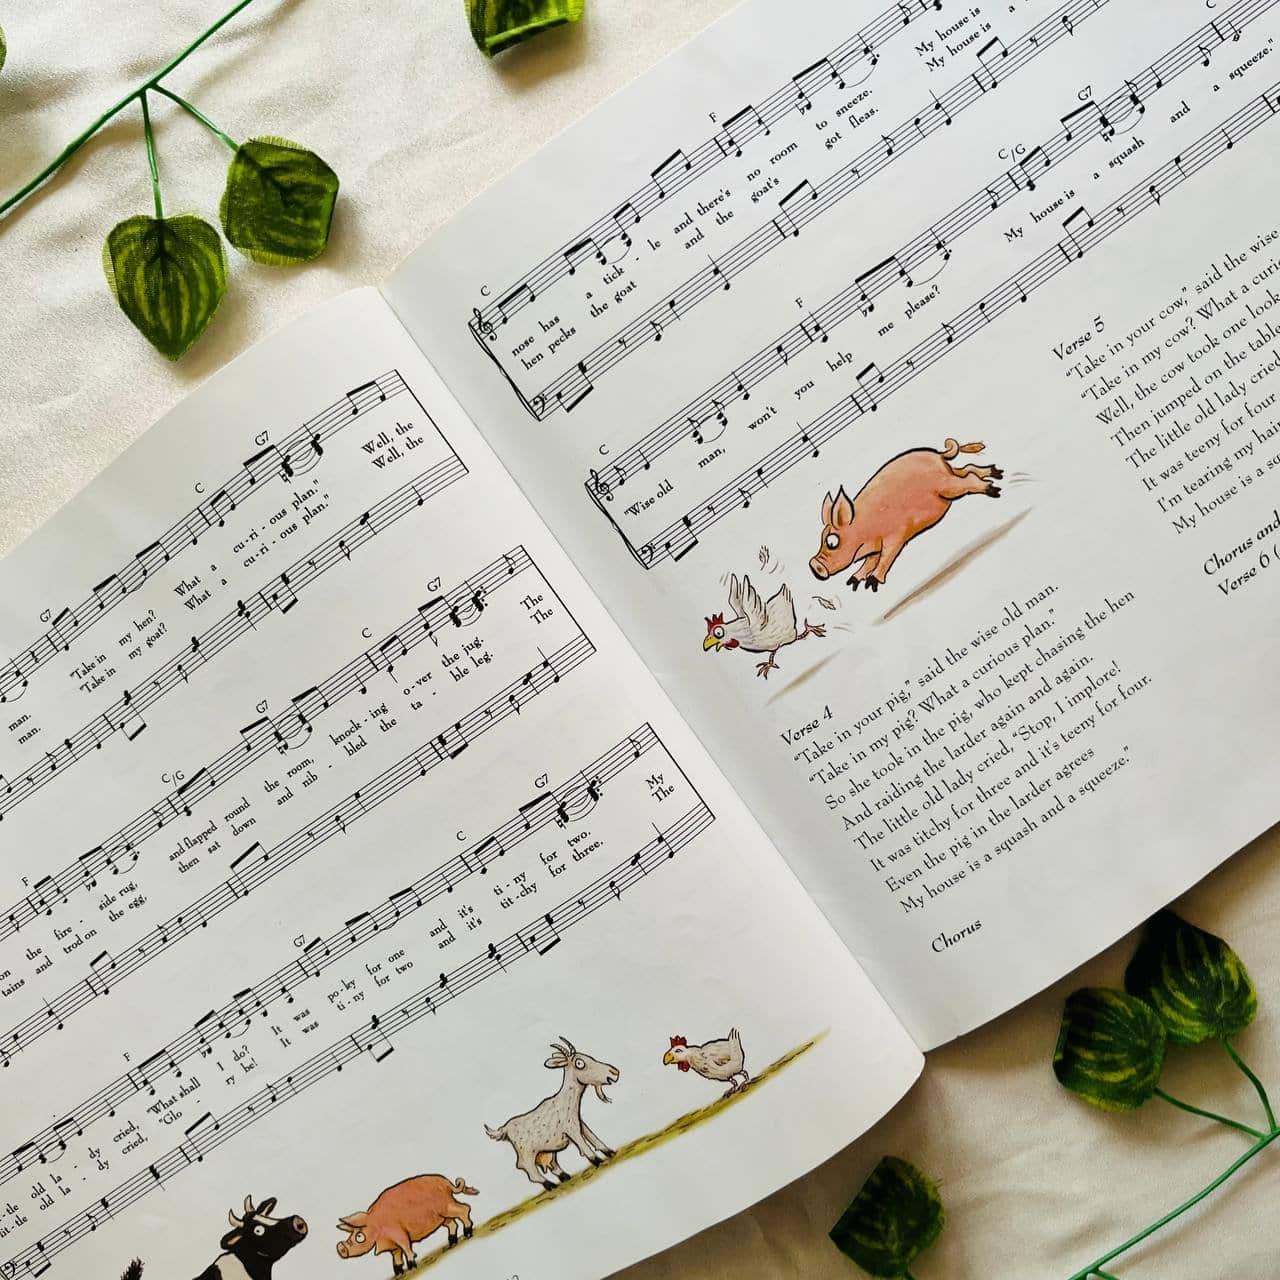 G7
C
G7
man.
"Take in my hen? What a cu - ri - ous plan."
Well, the
man.
"Take in my goat? What a cu - ri - ous plan."
Well, the
F
C/G
G7
C
G7
on the fire - side rug,
and flapped round the room, knock - ing o - ver the jug.
The
tains and trod on the egg,
then sat down and nib - bled the ta - ble leg.
The
F
G7
C
G7
tle old la - dy cried, "What shall I do? It was po - ky for one and it's ti - ny for two.
My
lit - tle old la - dy cried, "Glo - ry be! It was ti - ny for two and it's tit - chy for three.
The
C
F
C
nose has a tick - le and there's no room to sneeze.
My house is a
hen pecks the goat and the goat's got fleas.
My house is
C
F
C/G
G7
"Wise old man, won't you help me please?
My house is a squash and a squeeze."
Verse 4
"Take in your pig," said the wise old man.
"Take in my pig? What a curious plan."
So she took in the pig, who kept chasing the hen
And raiding the larder again and again.
The little old lady cried, "Stop, I implore!
It was titchy for three and it's teeny for four.
Even the pig in the larder agrees
My house is a squash and a squeeze."
Chorus
Verse 5
"Take in your cow," said the wise
"Take in my cow? What a
Well, the cow took one look
Then jumped on the
The little old lady cried
It was teeny for four
I'm tearing my
My house is a
Chorus and
Verse 6